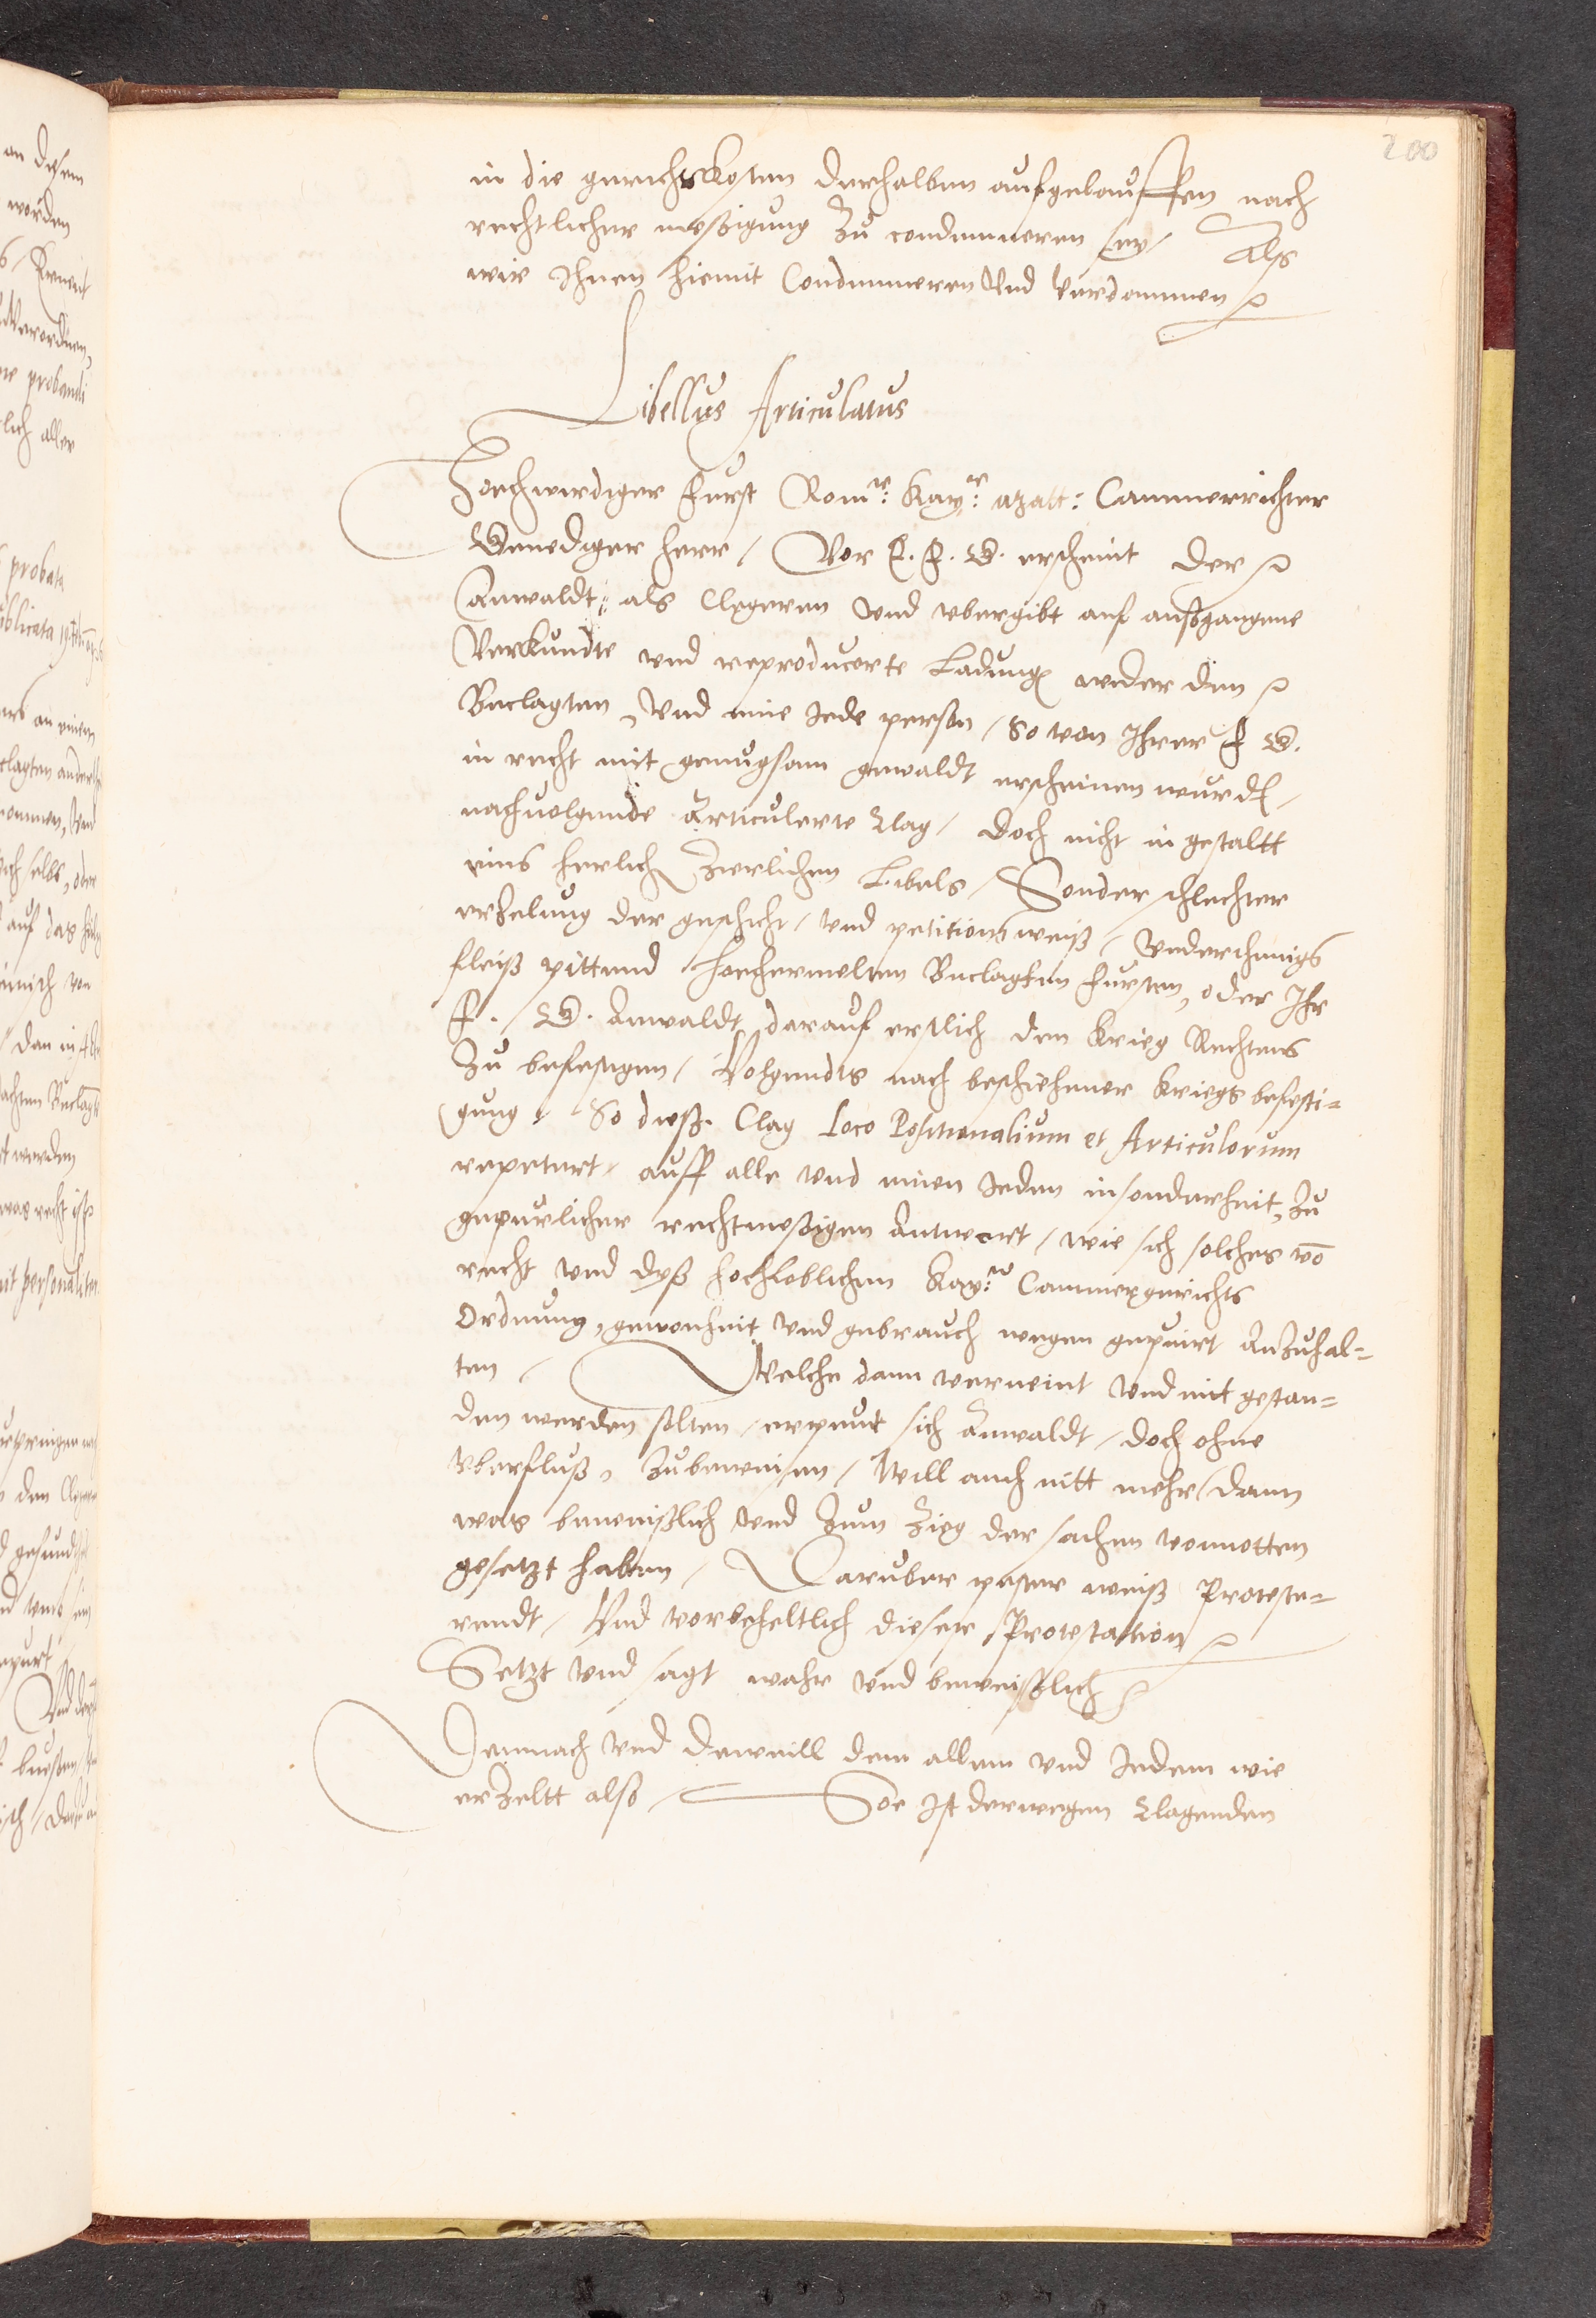 200
in die gerichtskosten derhalben aufgelauffen nach
rechtlicher meßigung zu condemneren sey / Als
wir Ihnen hiemit Condemneren Vnd verdammen
Libellus Articulatus
Hochwirdiger Furst Rom:r Kay:r Matt: Cammerrichter
Genediger herr / Vor E. F. G. erscheint der
Anwaldt: als Clegeren vnd vbergibt auf außgangene
Verkundte vnd reproducerte Ladung wider den
Beclagten, vnd eine Jede person / So von Ihrer F G.
in recht mit genugsam gewaldt erscheinen wurde /
nachuolgende Articulerte Clag / doch nicht in gestaltt
eins herlich zierlichen Libels / Sonder schlechter
erzelung der geschicht / vnd petitions weiß / vnderthenigs
fleiß pittend hochermelten Beclagten Fursten, oder Ihr
F. G. Anwaldt darauf erstlich den Krieg Rechtens
zu befestigen / Volgendts nach beschehener Kriegs befesti=
gung / So dieß Clag Loco Positionalium et Articulorum
repetert / auff alle vnd einen Jeden insonderheit, zu
gepurlicher rechtmeßigen Antwort / wie sich solches vō
recht vnd dyß hochloblichen Kay:n Cammergerichts
Ordnung, gewonheit vnd gebrauch wegen gepuirt Anzuhal=
ten / Welche dann verneint vnd nitt gestan=
den werden solten / erpeut sich Anwaldt / doch ohne
vberfluß, zubeweisen / Will auch nitt mehr dann
was beweißlich vnd zum Zieg der sachen vonnotten
gesetzt haben / Daruber pester weiß Proteste=
rendt / Vnd vorbeheltlich dieser Protestation
Setzt vnd sagt wahr vnd beweißlich
Demnach vnd Dieweill dem allem vnd Jedem wie
erzeltt also / Soe Ist derwegen Clagenden